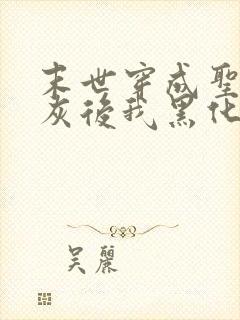 末世穿成聖
灰後我黑化
吴麗